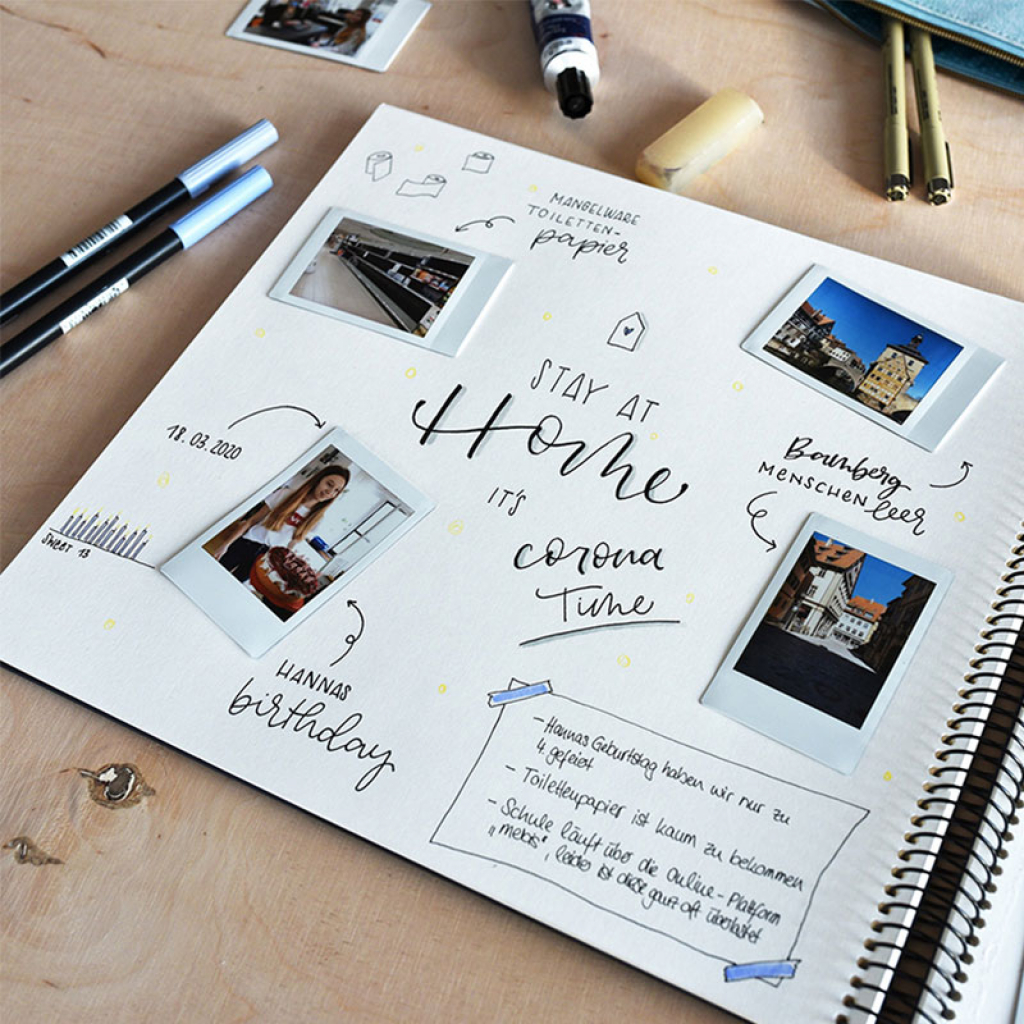 MANGELWARE
TOILETTEN-
papier
STAY AT
Home
IT'S
corona
Time
18.03.2020
Sweet 13
HANNAS
birthday
Bamberg
MENSCHENleer
- Hannas Geburtstag haben wir nur zu
4. gefeiert
- Toilettenpapier ist kaum zu bekommen
- Schule läuft über die Online-Plattform
„mebis“, leider ist diese ganz oft überlastet